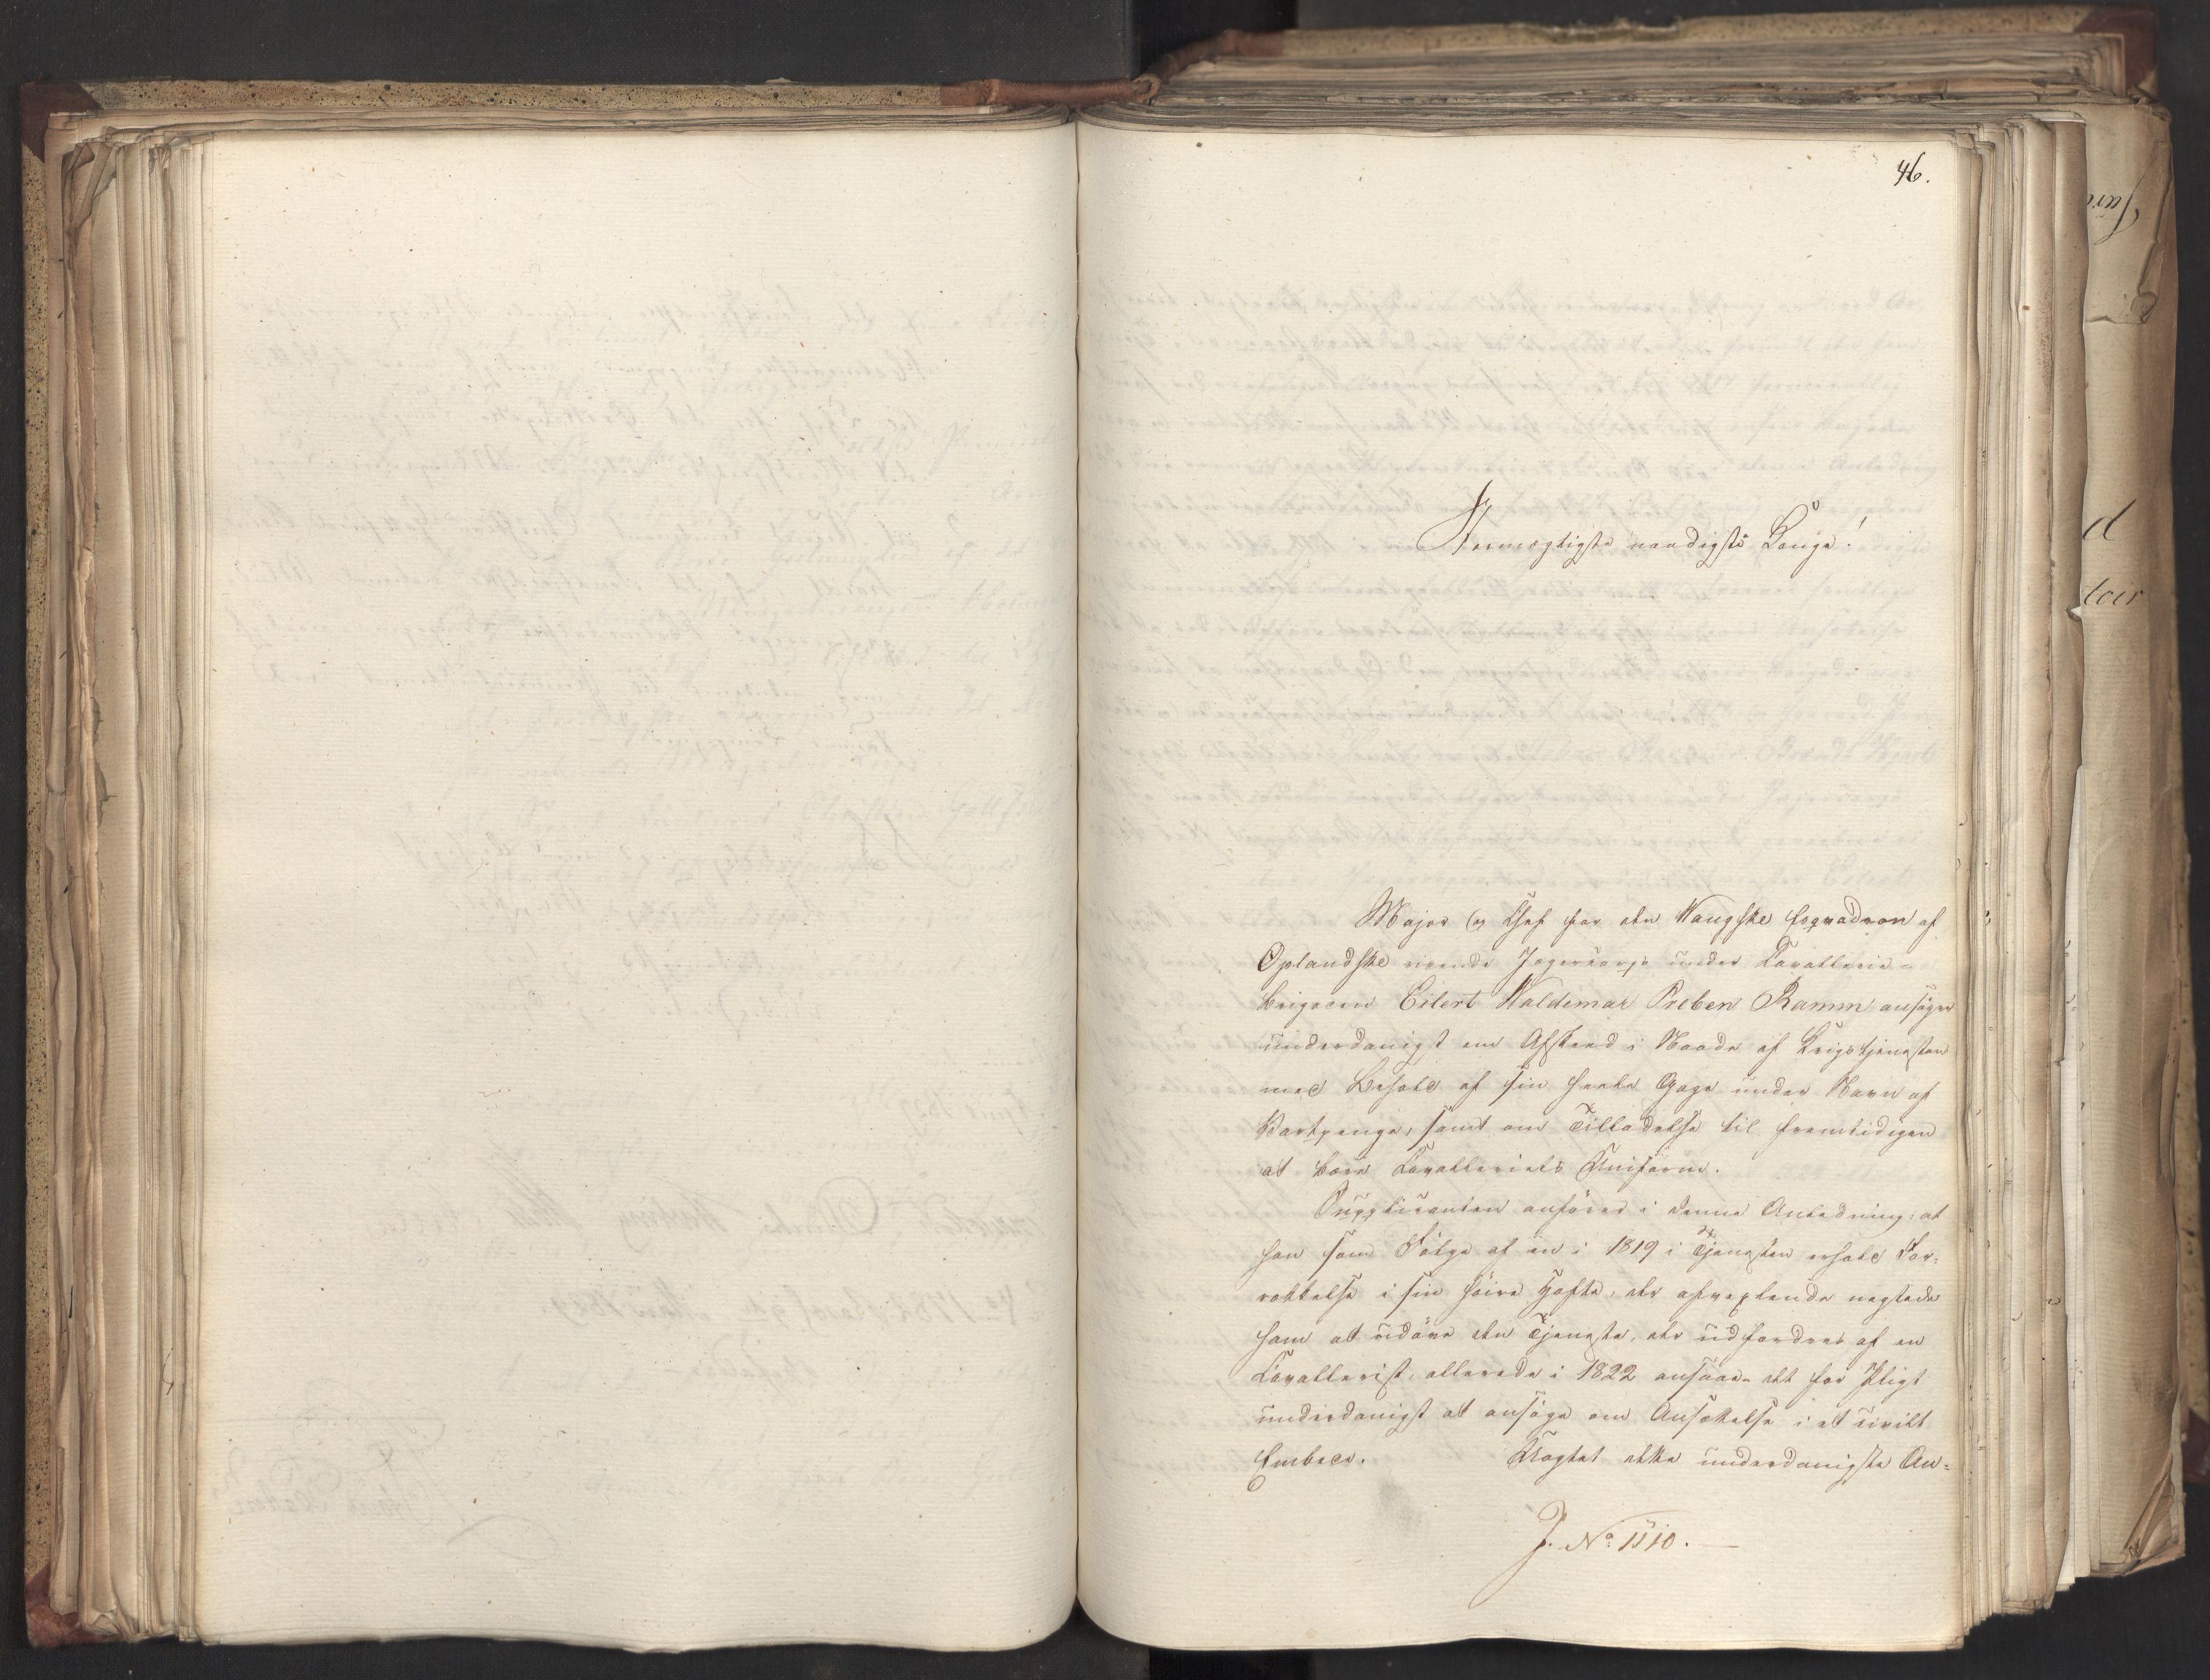 46.
Stormægtigste naadigste Konge!
Major og Chef for den Wangske Esqvadron af
Oplandske ridende Jægercorps under Cavallerie-
brigaden Eilert Waldemar Preben Ramm ansøger
underdanigst om Afskeed i Naade af Krigstjenesten
med Beholdt af sin heele Gage under Navn af
Vartpenge, samt om Tilladelse til fremtidigen
at bære Cavalleriets Uniform.
Supplicanten anfører i denne Anledning: at
han som Følge af en i 1819 i Tjenesten erholdt For-
rykkelse i sin høire Hofte, der afvexlende negtede
ham at udøve den Tjeneste, der udfordres af en
Cavallerist, allerede i 1822 ansaae det for Pligt
underdanigst at ansøge om Ansættelse i et civilt
Embede. Uagtet dette underdanigste An-
J. No 1510.
d
toir